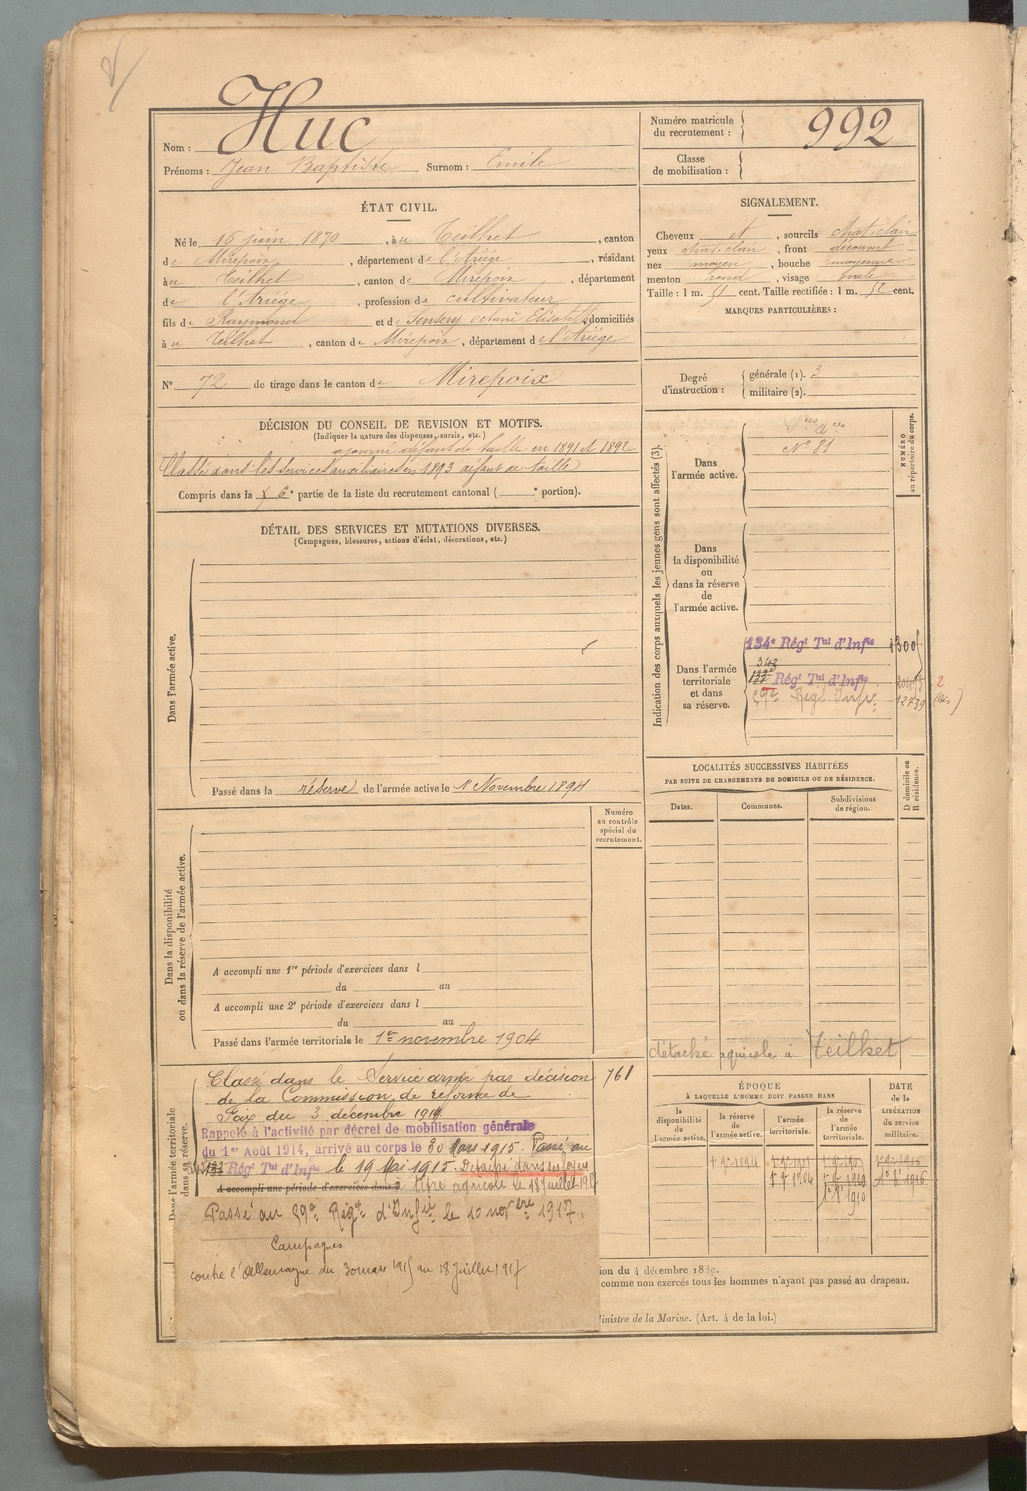 Nom : Huc
Prénoms : Jean Baptiste Surnom : Emile
Numéro matricule
du recrutement : 992
Classe
de mobilisation :
ÉTAT CIVIL.
Né le 15 juin 1870, à Teilhet, canton
de Mirepoix, département de l'Ariège, résidant
à Teilhet, canton de Mirepoix, département
de l'Ariège, profession de cultivateur
fils de Raymond et de domiciliés
à Teilhet, canton de Mirepoix, département de l'Ariège
N° 72 de tirage dans le canton de Mirepoix
SIGNALEMENT.
Cheveux et, sourcils chat. clair
yeux chat. clair, front découvert
nez moyen, bouche moyenne
menton rond, visage ovale
Taille : 1 m. 51 cent. Taille rectifiée : 1 m. 52 cent.
MARQUES PARTICULIÈRES :
Degré
d'instruction :
générale (1). 3
militaire (2).
DÉCISION DU CONSEIL DE REVISION ET MOTIFS.
(Indiquer la nature des dispenses, sursis, etc.)
ajourné défaut de taille en 1891 et 1892
Classé dans les services auxiliaires en 1893 défaut de taille
Compris dans la 6e partie de la liste du recrutement cantonal ( e portion).
DÉTAIL DES SERVICES ET MUTATIONS DIVERSES.
(Campagnes, blessures, actions d'éclat, décorations, etc.)
Dans l'armée active.
Passé dans la réserve de l'armée active le 1er Novembre 1894
Indication des corps auxquels les jeunes gens sont affectés (3).
NUMÉRO
au répertoire du corps.
Dans
l'armée active.
N° 81
Dans
la disponibilité
ou
dans la réserve
de
l'armée active.
Dans l'armée
territoriale
et dans
sa réserve.
134e Régt Tal d'Infie 1300
343
133e Régt Tal d'Infie
59e Régt Infie 12739 (bis)
2
LOCALITÉS SUCCESSIVES HABITÉES
PAR SUITE DE CHANGEMENTS DE DOMICILE OU DE RÉSIDENCE.
D domicile ou
R résidence.
Dates.
Communes.
Subdivisions
de région.
détaché agricole à Teilhet
Numéro
au contrôle
spécial du
recrutement.
Dans la disponibilité
ou dans la réserve de l'armée active.
A accompli une 1re période d'exercices dans l
du au
A accompli une 2e période d'exercices dans l
du au
Passé dans l'armée territoriale le 1er novembre 1904
Dans l'armée territoriale
dans sa réserve.
Classé dans le Service armé par décision 761
de la Commission de réforme de
Foix du 3 décembre 1914
Rappelé à l'activité par décret de mobilisation générale
du 1er Août 1914, arrivé au corps le 30 Mars 1915. Passé au
133 Régt Tal d'Infie le 19 Mai 1915. Détaché dans ses foyers
A accompli une période d'exercices dans
titre agricole le 18 juillet 1917
Passé au 59e Régt d'Infie le 10 novbre 1917.
Campagnes
contre l'Allemagne du 30 mars 1915 au 18 juillet 1917
ÉPOQUE
À LAQUELLE L'HOMME DOIT PASSER DANS
DATE
de la
LIBÉRATION
du service
militaire.
la
disponibilité
de
l'armée active.
la réserve
de
l'armée active.
l'armée
territoriale.
la
réserve
de
l'armée
territoriale.
1er 9bre 1894
1er 9bre 1904
1er 9bre 1910
ion du 4 décembre 1889.
comme non exercés tous les hommes n'ayant pas passé au drapeau.
Ministre de la Marine. (Art. 4 de la loi.)